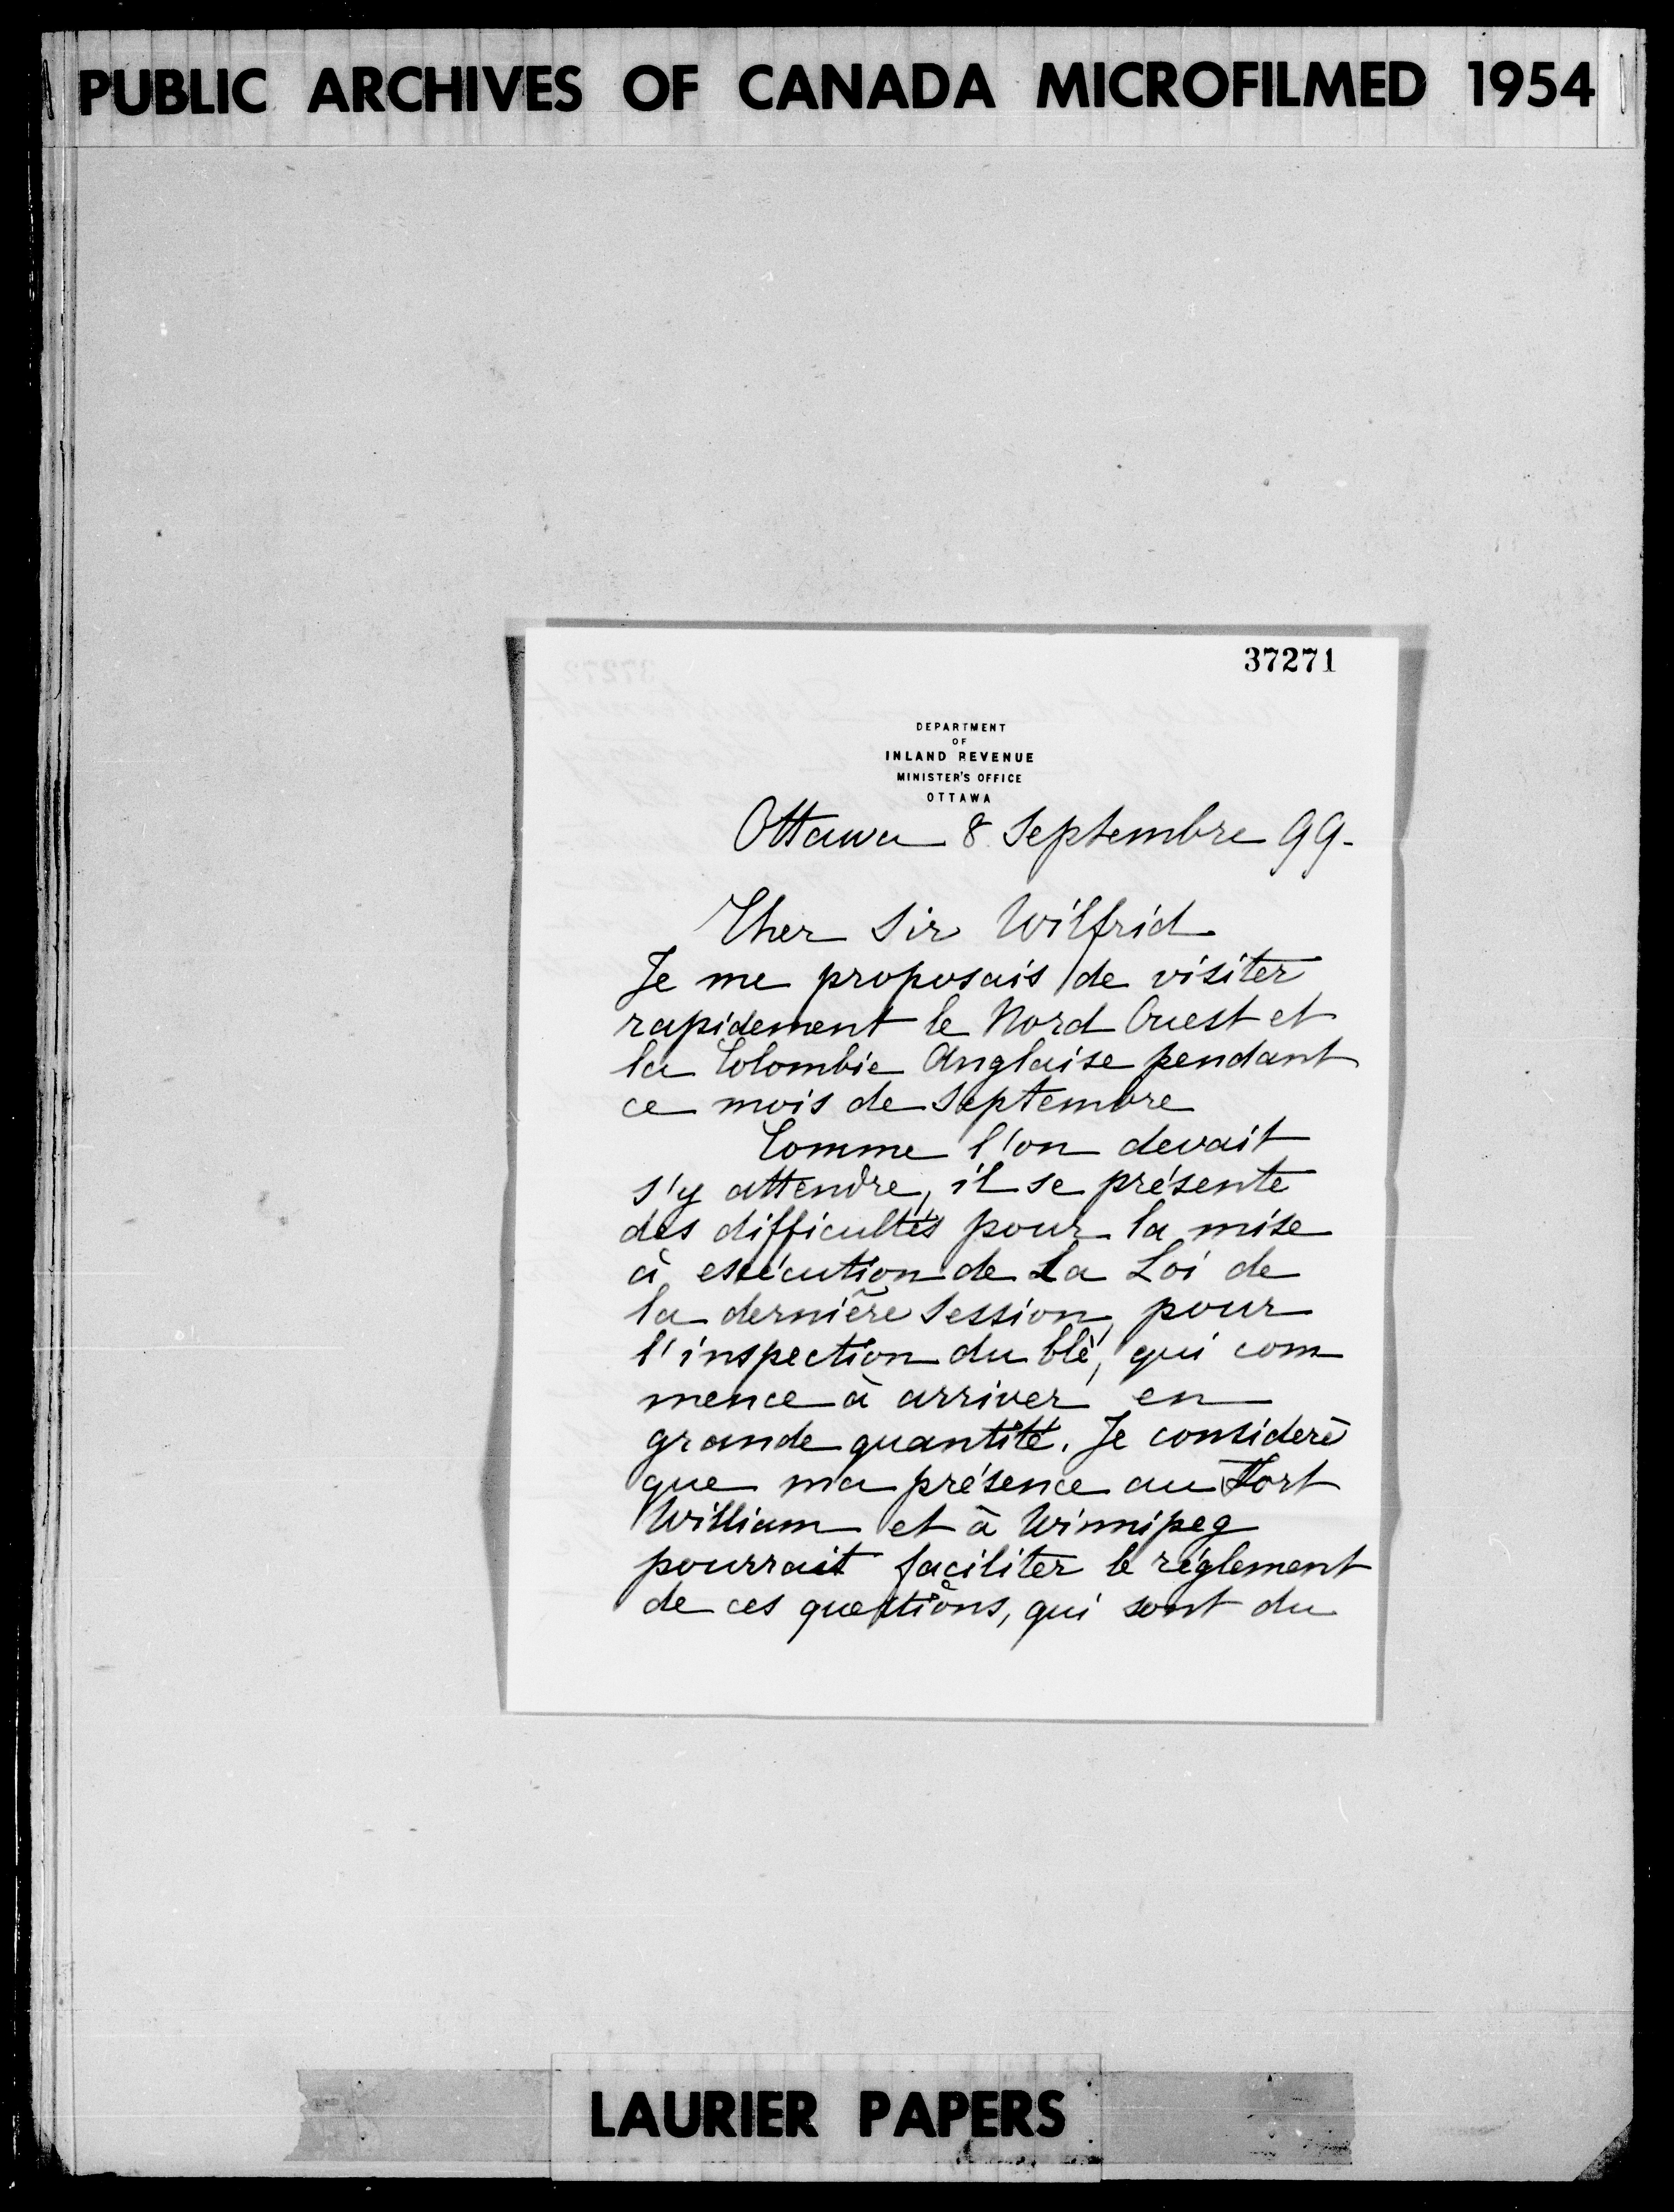 PUBLIC ARCHIVES OF CANADA MICROFILMED 1954
37271
DEPARTMENT
OF
INLAND REVENUE
MINISTER'S OFFICE
OTTAWA
Ottawa 8 Septembre 99.
Cher Sir Wilfrid
Je me proposais de visiter
rapidement le Nord Ouest et
la Colombie Anglaise pendant
ce mois de Septembre
Comme l'on devait
s'y attendre, il se présente
des difficultés pour la mise
à exécution de La Loi de
la dernière Session, pour
l'inspection du blé, qui com
mence à arriver en
grande quantité. Je considère
que ma présence au Fort
William et à Winnipeg
pourrait faciliter le réglement
de ces questions, qui sont du
LAURIER PAPERS